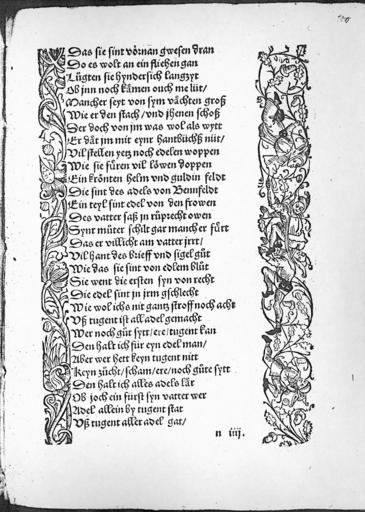 Das sie sint vornan gwesen dran
Do es wolt an ein fliehen gan
Lůgten sie hyndersich langzyt
Ob jnn noch kåmen ouch me lüt/
Mancher seyt von sym våchten groß
Wie er den stach/ vnd jhenen schoß
Der doch von jm was wol als wytt
Er dåt jm mit eynr hantbüchß nüt/
Vil stellen yetz noch edelen woppen
Wie sie fůren vil löwen doppen
Ein krönten helm vnd guldin feldt
Die sint des adels von Bennfeldt
Ein teyl sint edel von den frowen
Des vatter saß jn růprecht owen
Synr můter schilt gar mancher fůrt
Das er villicht am vatter jrrt/
Vil hant des brieff vnd sigel gůt
Wie das sie sint von edlem blůt
Sie went die ersten syn von recht
Die edel sint jn jrm gschlecht
Wie wol ichs nit gantz stroff noch acht
Vß tugent ist all adel gemacht
Wer noch gůt sytt/ ere/ tugent kan
Den halt ich für eyn edel man/
Aber wer hett keyn tugent nitt
Keyn zůcht/ scham/ ere/ noch gůte sytt
Den halt ich alles adels lår
Ob joch ein fürst syn vatter wer
Adel allein by tugent stat
Vß tugent aller adel gat/
n iiij.